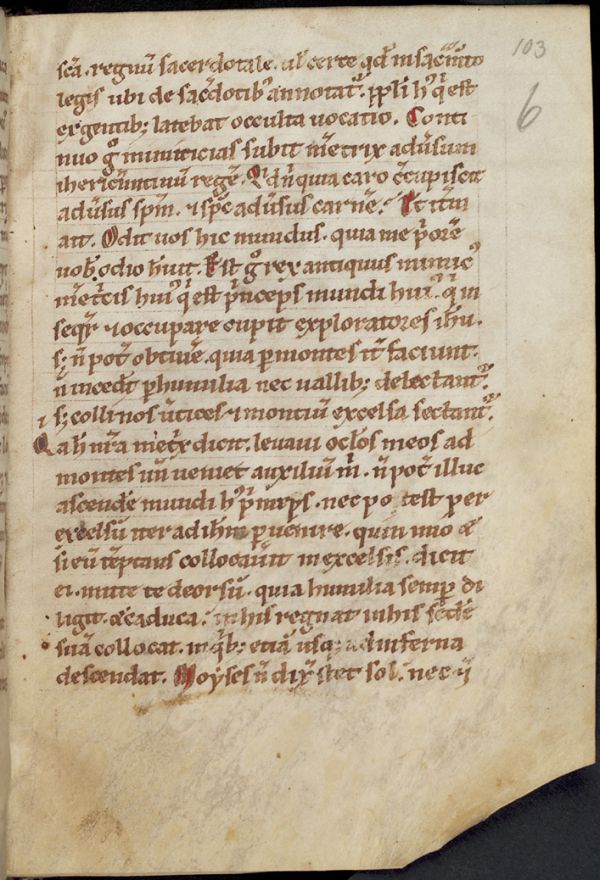 103
6
sc̄a. regnū sacerdotale. ul̓ certe qd̓ in sac̄m̄to
legis ubi de sac̄dotib; annotat᷑. pp̄li h᷒ q̓ est
ex gentib; latebat occulta uocatio. Conti
nuo g̊ inimicicias subit m̄etrix adūsum
ihericūntinū regē.
aduͥsus sp̄m. ⁊ sp̄c aduͥsus carnē. Et itūm
ait. Odit uos hic mundus. quia me p̓orē
uob̓ odio h̄uit. Est g̊ rex antiquus inimic᷒
m̄et̓cis hui᷒ q̓ est p̓nceps mundi hui᷒. q̓ in
seqr᷑ ⁊ occupare cupit exploratores ih̄u.
s; n̄ pot᷑ obtinē. quia p̱ montes it̄ faciunt.
n̄ incedt̄ p̱ humilia nec uallib; delectant᷑.
s; collinos ūtices ⁊ montiū excelsa sectant᷑.
dicit. leuaui oc̓los meos ad
montes un̄ ueniet auxiliū m̓. n̄ pot᷑ illuc
ascendē mundi h᷒ p̓nceps. nec potest per
excelsū iter ad ih̄m p̱uenire. quin immo &
si eū tēptans collocauīt in excelsis. dicit
ei. mitte te deorsū. quia humilia semp̱ di
ligit. & caduca. in his regnat in his sedē
suā collocat. in q̓b; etiā usq; ad inferna
descendat. Moyses n̄ dix̓ stet sol. nec ii